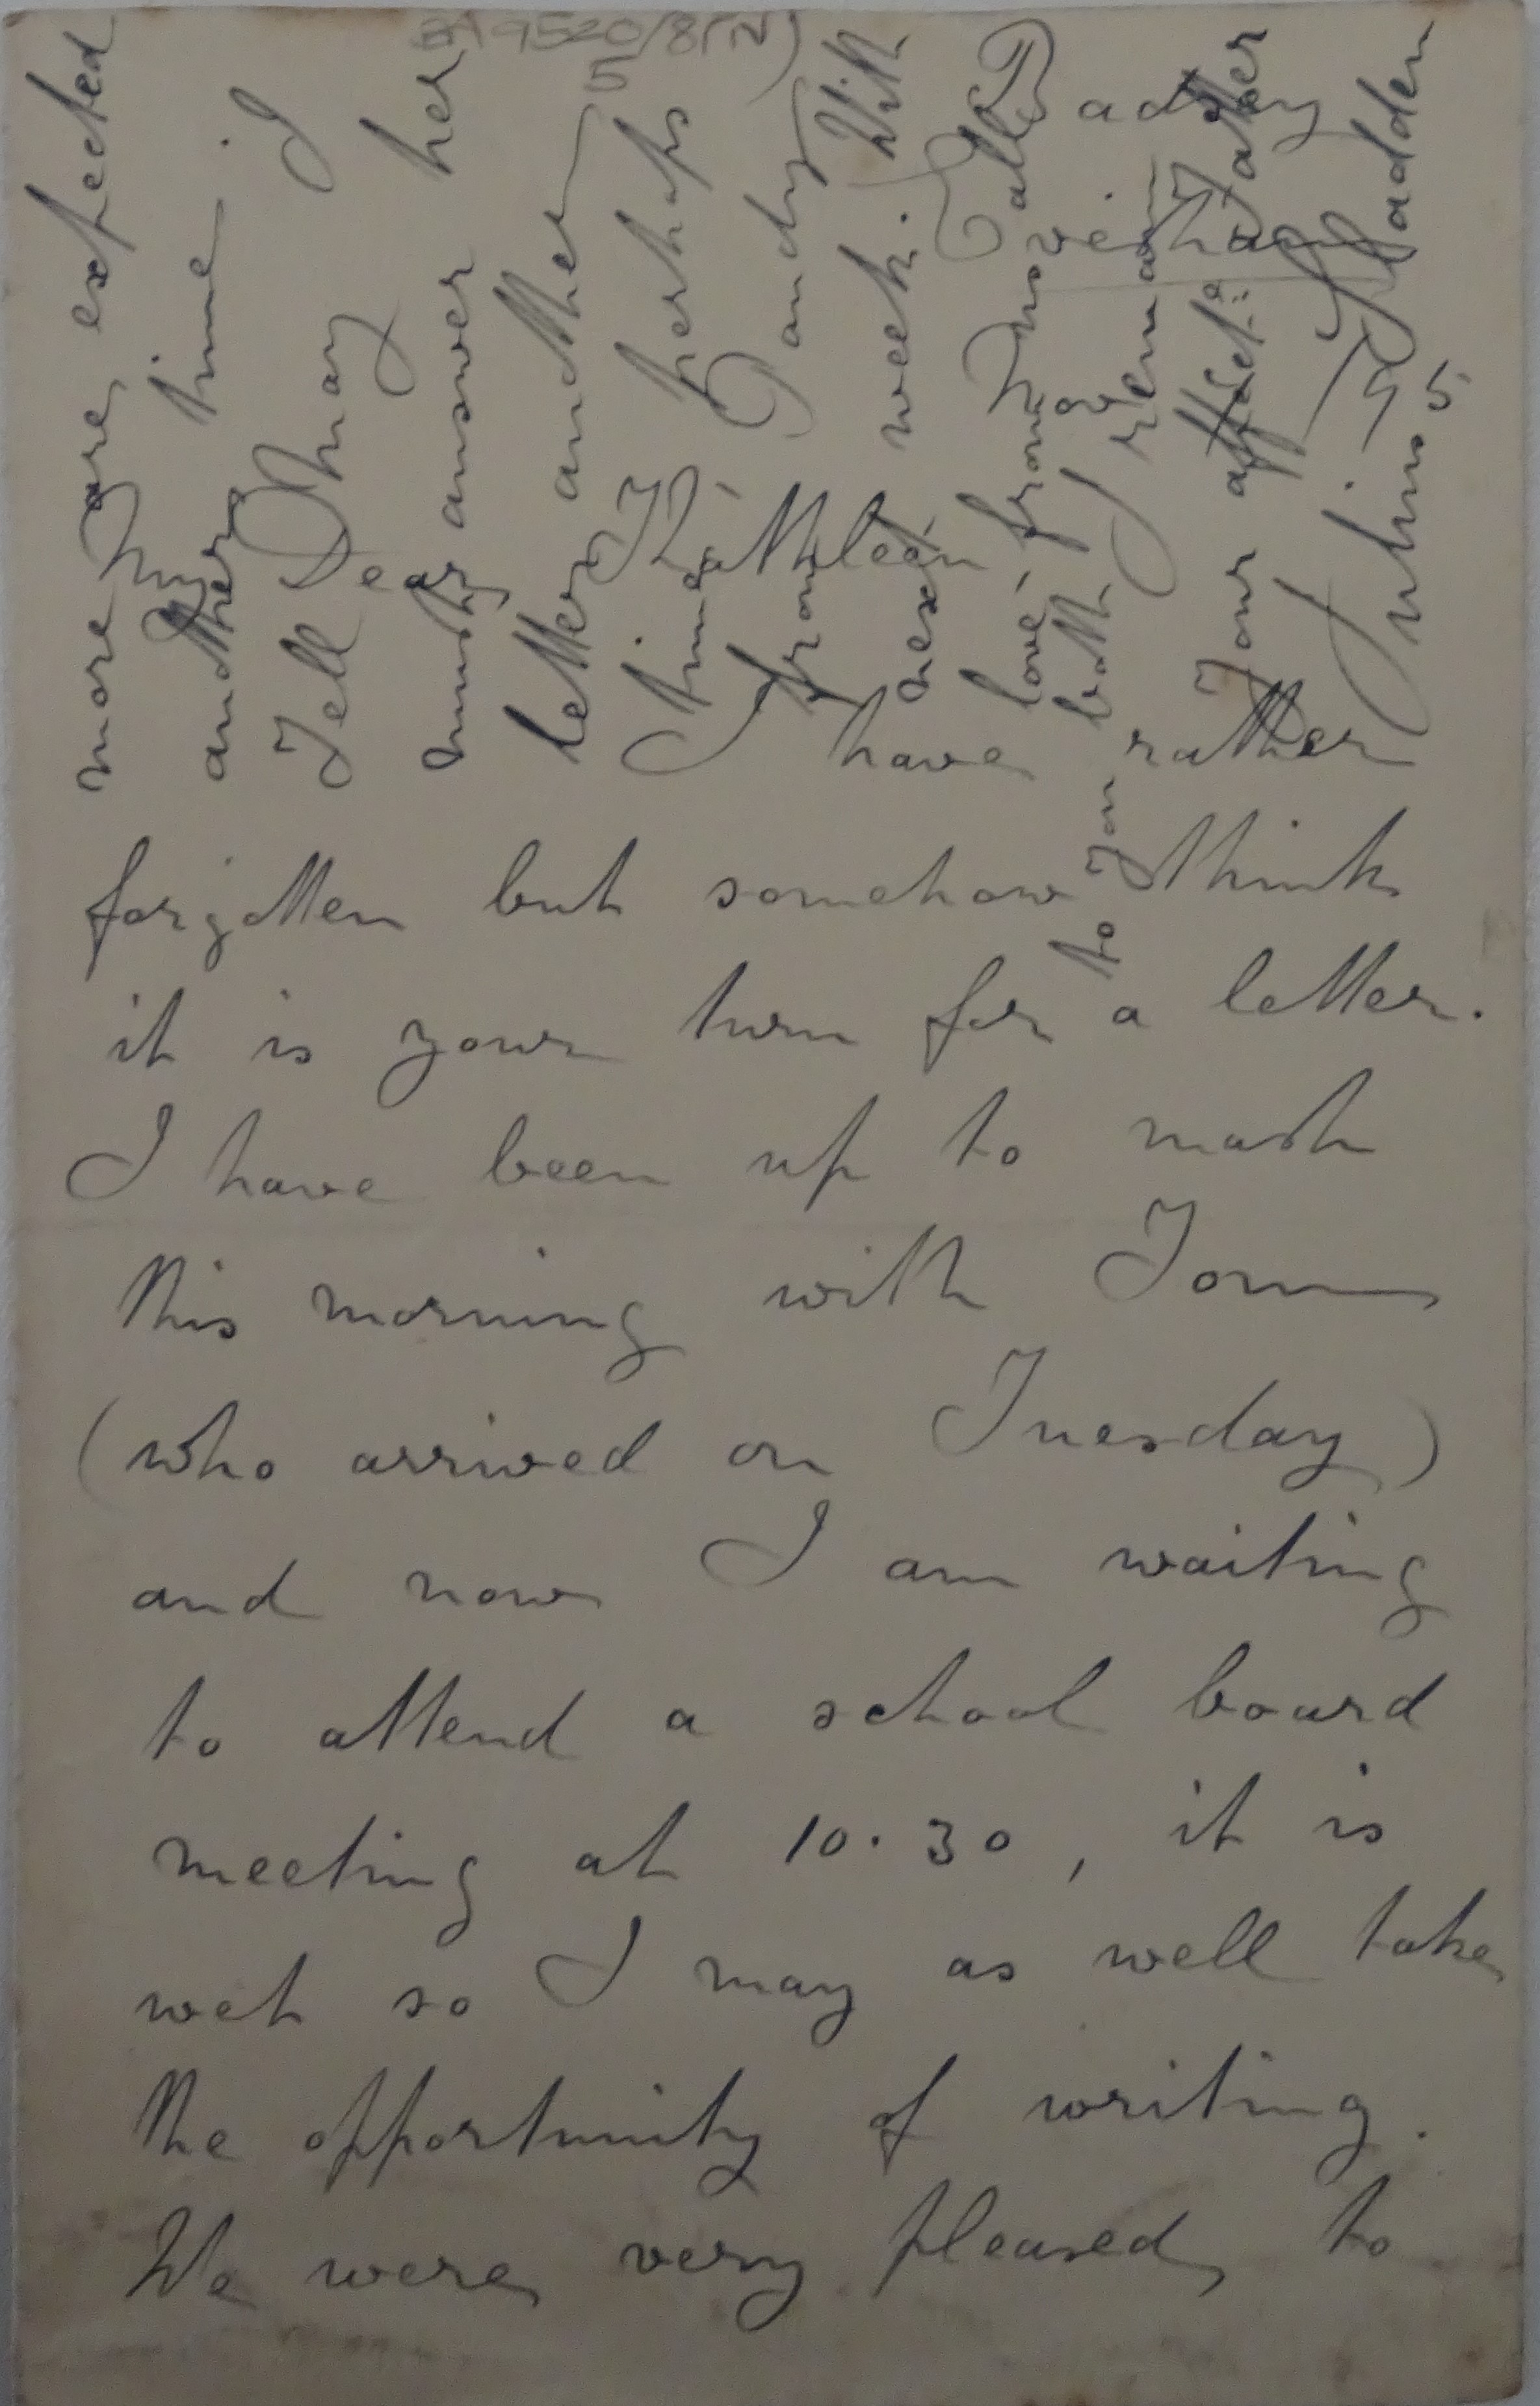 BA 9520/8(IV)
5
My
Dear Kathleen
I have rather
forgotten but somehow think
it is your turn for a letter.
I have been up to mash
this morning with Tom
(who arrived on Tuesday)
and now I am waiting
to attend a school board
meeting at 10.30, it is
wet so I may as well take
the opportunity of writing.
We were very pleased to
more are expected
another time.
Tell May I
must answer her
letter another
time perhaps
from Pandy
next week. With
love from
to you both I remain
Your affecte Father
Julius